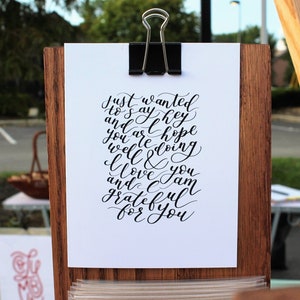 Just wanted
to say hey
and I hope
you are doing
well &
I love you
and I am
grateful
for you